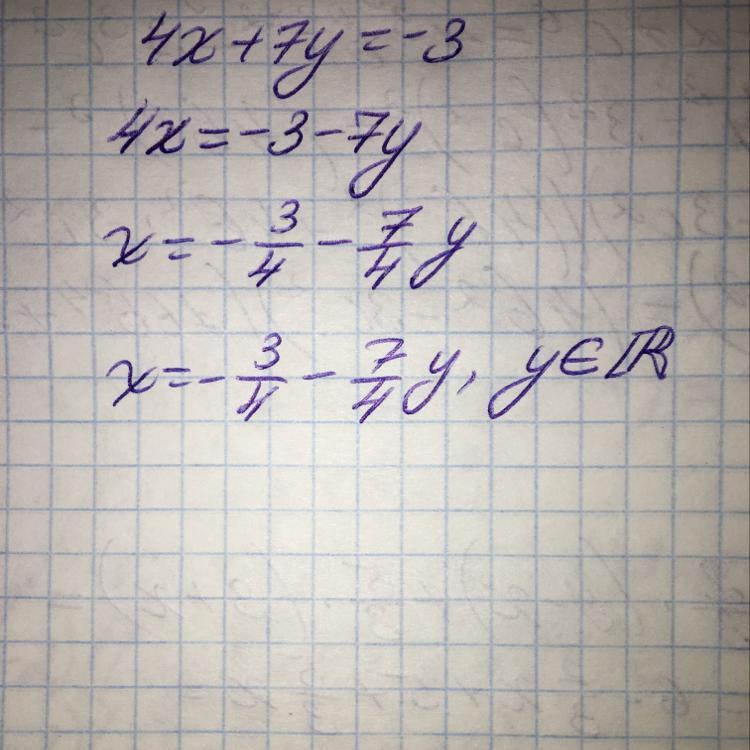 4x+7y=-3
4x=-3-7y
x=-3/4-7/4y
x=-3/4-7/4y, y∈ℝ